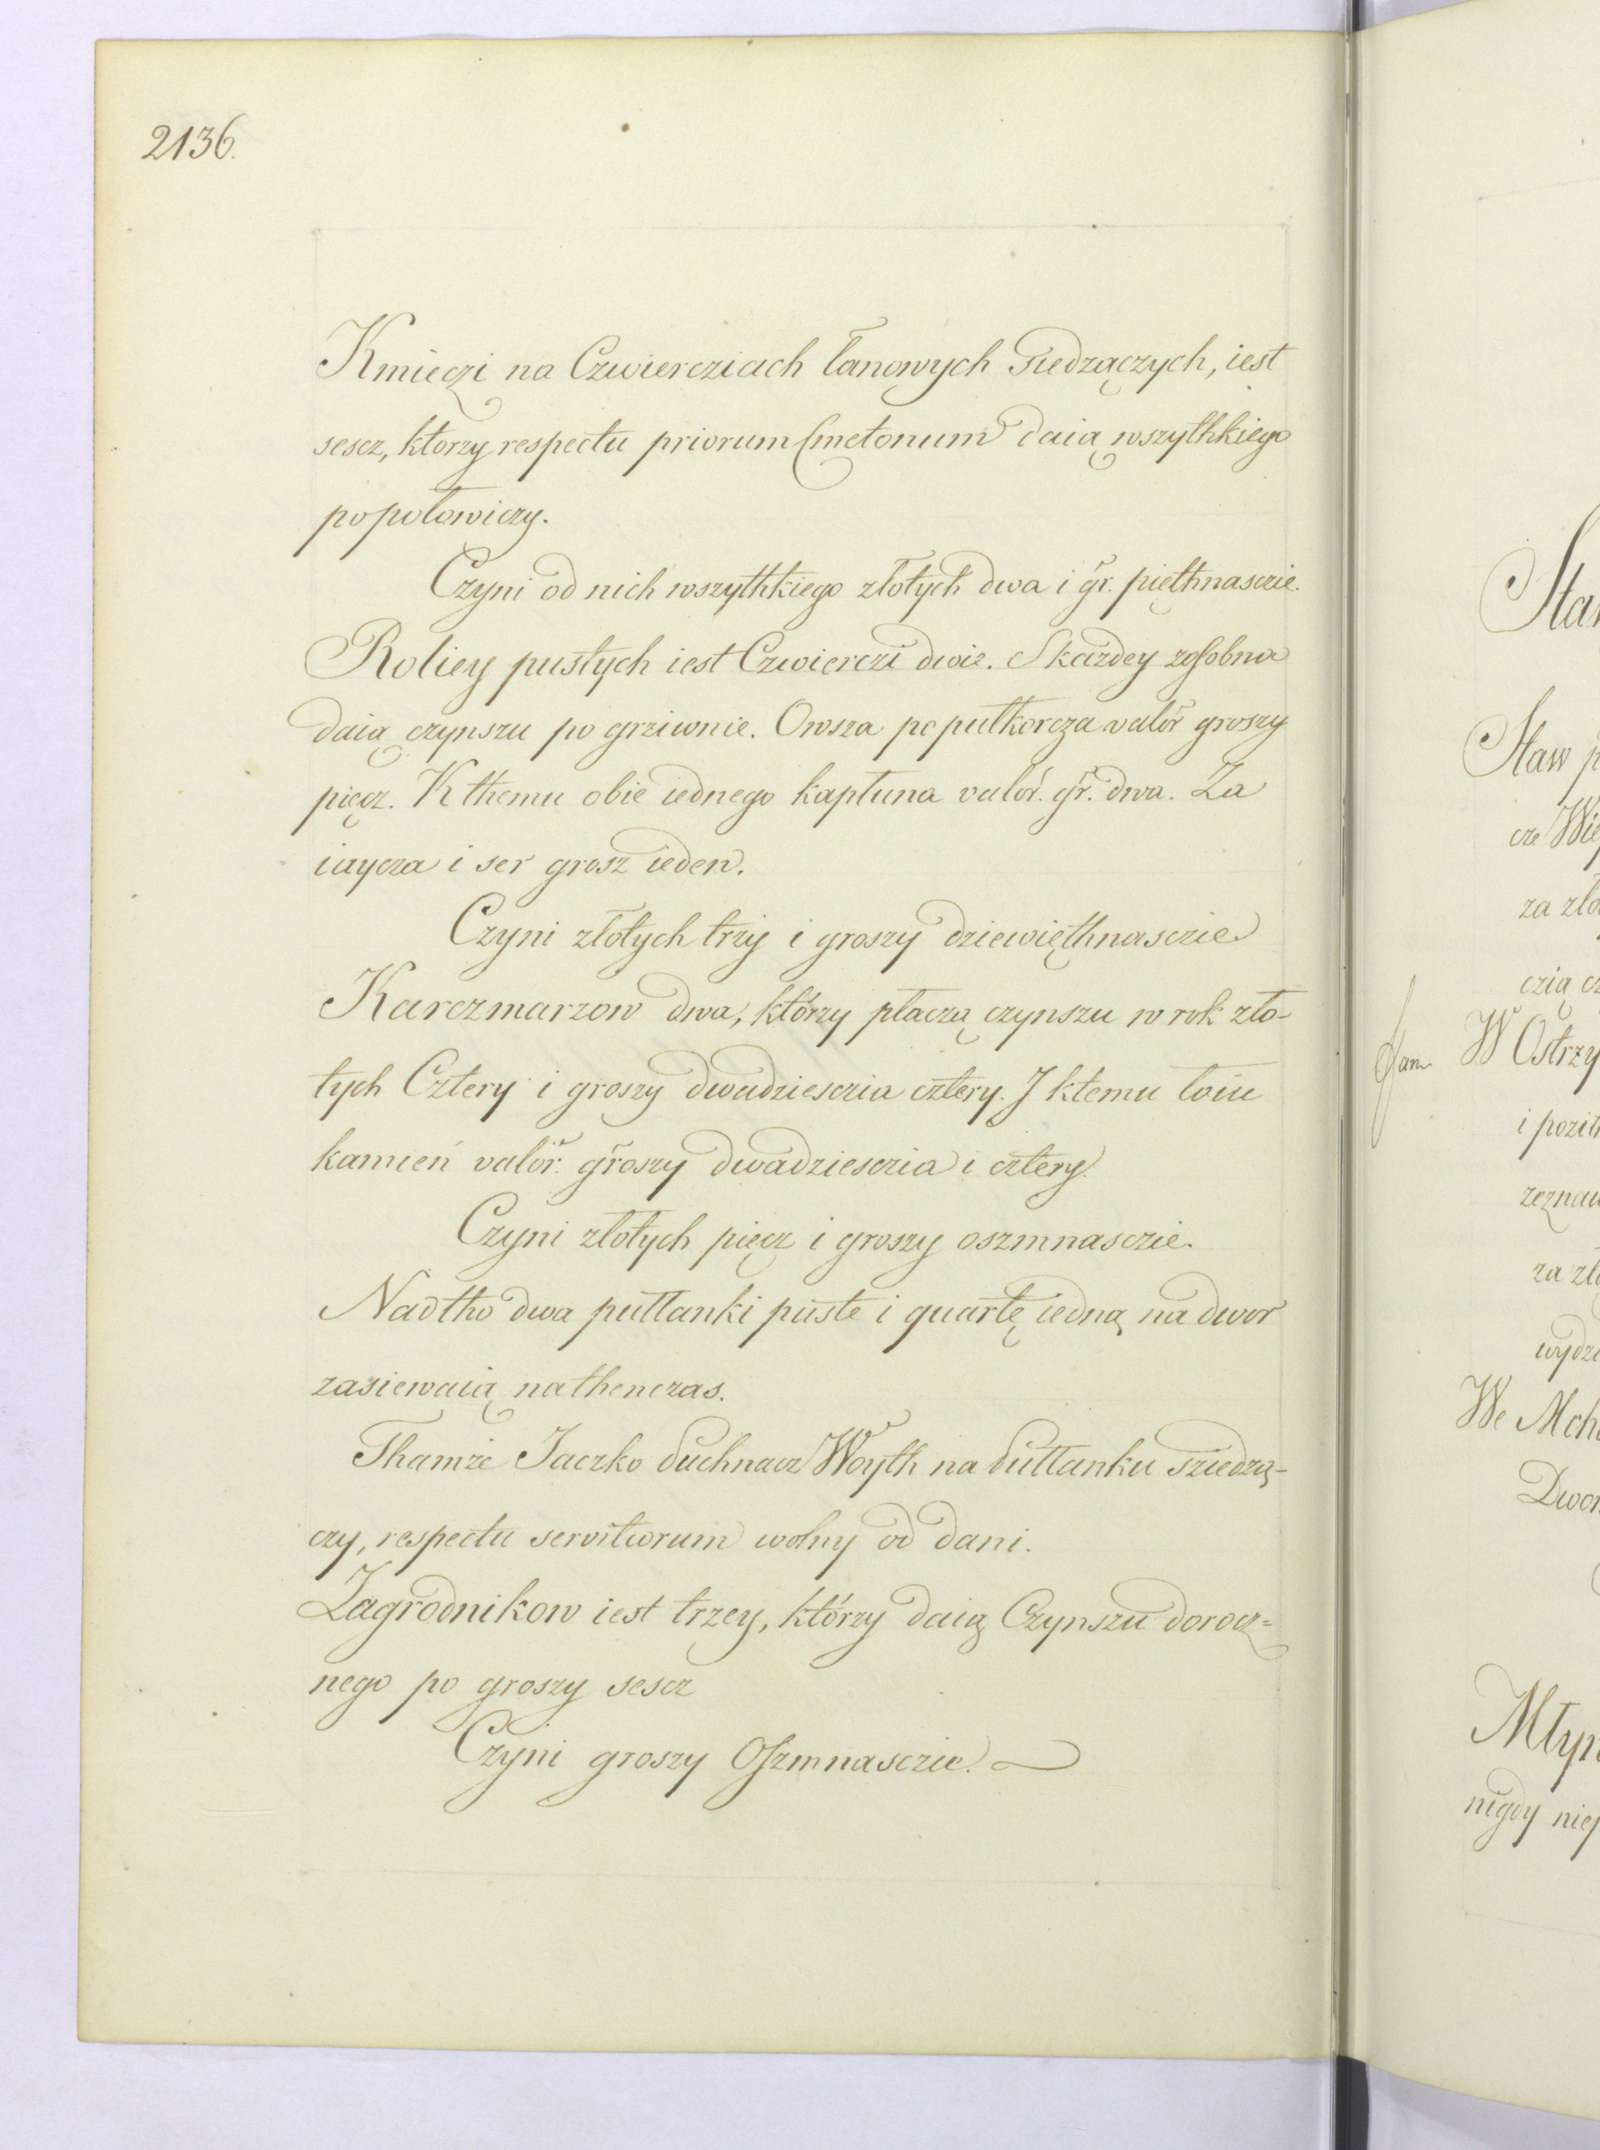 2136.
Kmieczi na Czwierciach łanowych siedzączych, iest
sescz, którzy respectu priorum Cmetonum daią wszythkiego
po połowiczy.
Czyni od nich wszythkiego złotych dwa i gr. pięthnasczie.
Roliey pustych iest Czwierczi dwie. Skazdey zosobna
daią czynszu po grziwnie. Owsza po pułkorcza valor groszy
pięcz. K themu obie iednego kapłuna valór. gr. dwa. Za
iaycza i ser grosz ieden.
Czyni złotych trzy i groszy dziewięthnasczie
Karczmarzow dwa, którzy płaczą czynszu w rok zło-
tych Cztery i groszy dwadziesczia cztery. J ktemu łoiu
kamień valór. groszy dwadziesczia i cztery.
Czyni złotych pięcz i groszy oszmnasczie.
Nadtho dwa pułłanki puste i quartę iedną na dwor
zasiewaią nathenczas.
Thamże Jaczko Suchnacz Woyth na Pułłanku sziedzą-
czy, respectu servitiorum wolny od dani.
Zagrodnikow iest trzey, którzy daią Czynszu docz=
nego po groszy sescz
Czyni groszy Oszmnasczie.
Staw
cze
za
czią
W Ostrzy
i
za
We
Dwor
Młyn
nigdy